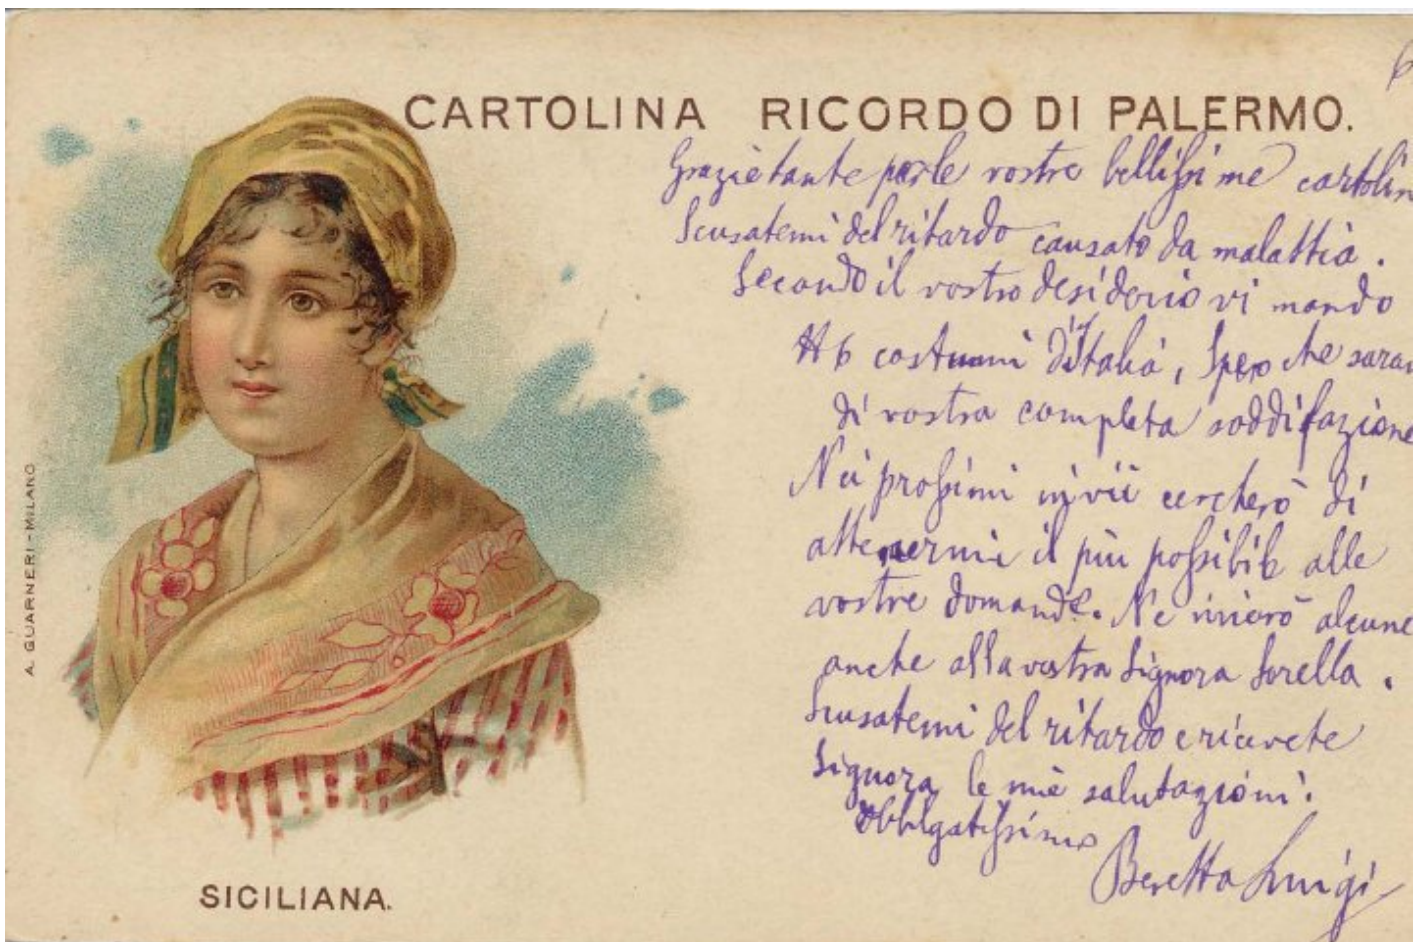 CARTOLINA RICORDO DI PALERMO.
Grazie tante per le vostre bellissime cartolin
Scusatemi del ritardo causato da malattia.
Secondo il vostro desiderio vi mando
6 costumi d'Italia, Spero che saran
di vostra completa soddifazione
Nei prossimi invii cercherò di
attenermi il più possibile alle
vostre domande. Ne invierò alcune
anche alla vostra Signora Sorella.
Scusatemi del ritardo e ricevete
Signora le mie salutazioni.
Obbligatissimo
Beretta Luigi
A. GUARNERI - MILANO
SICILIANA.